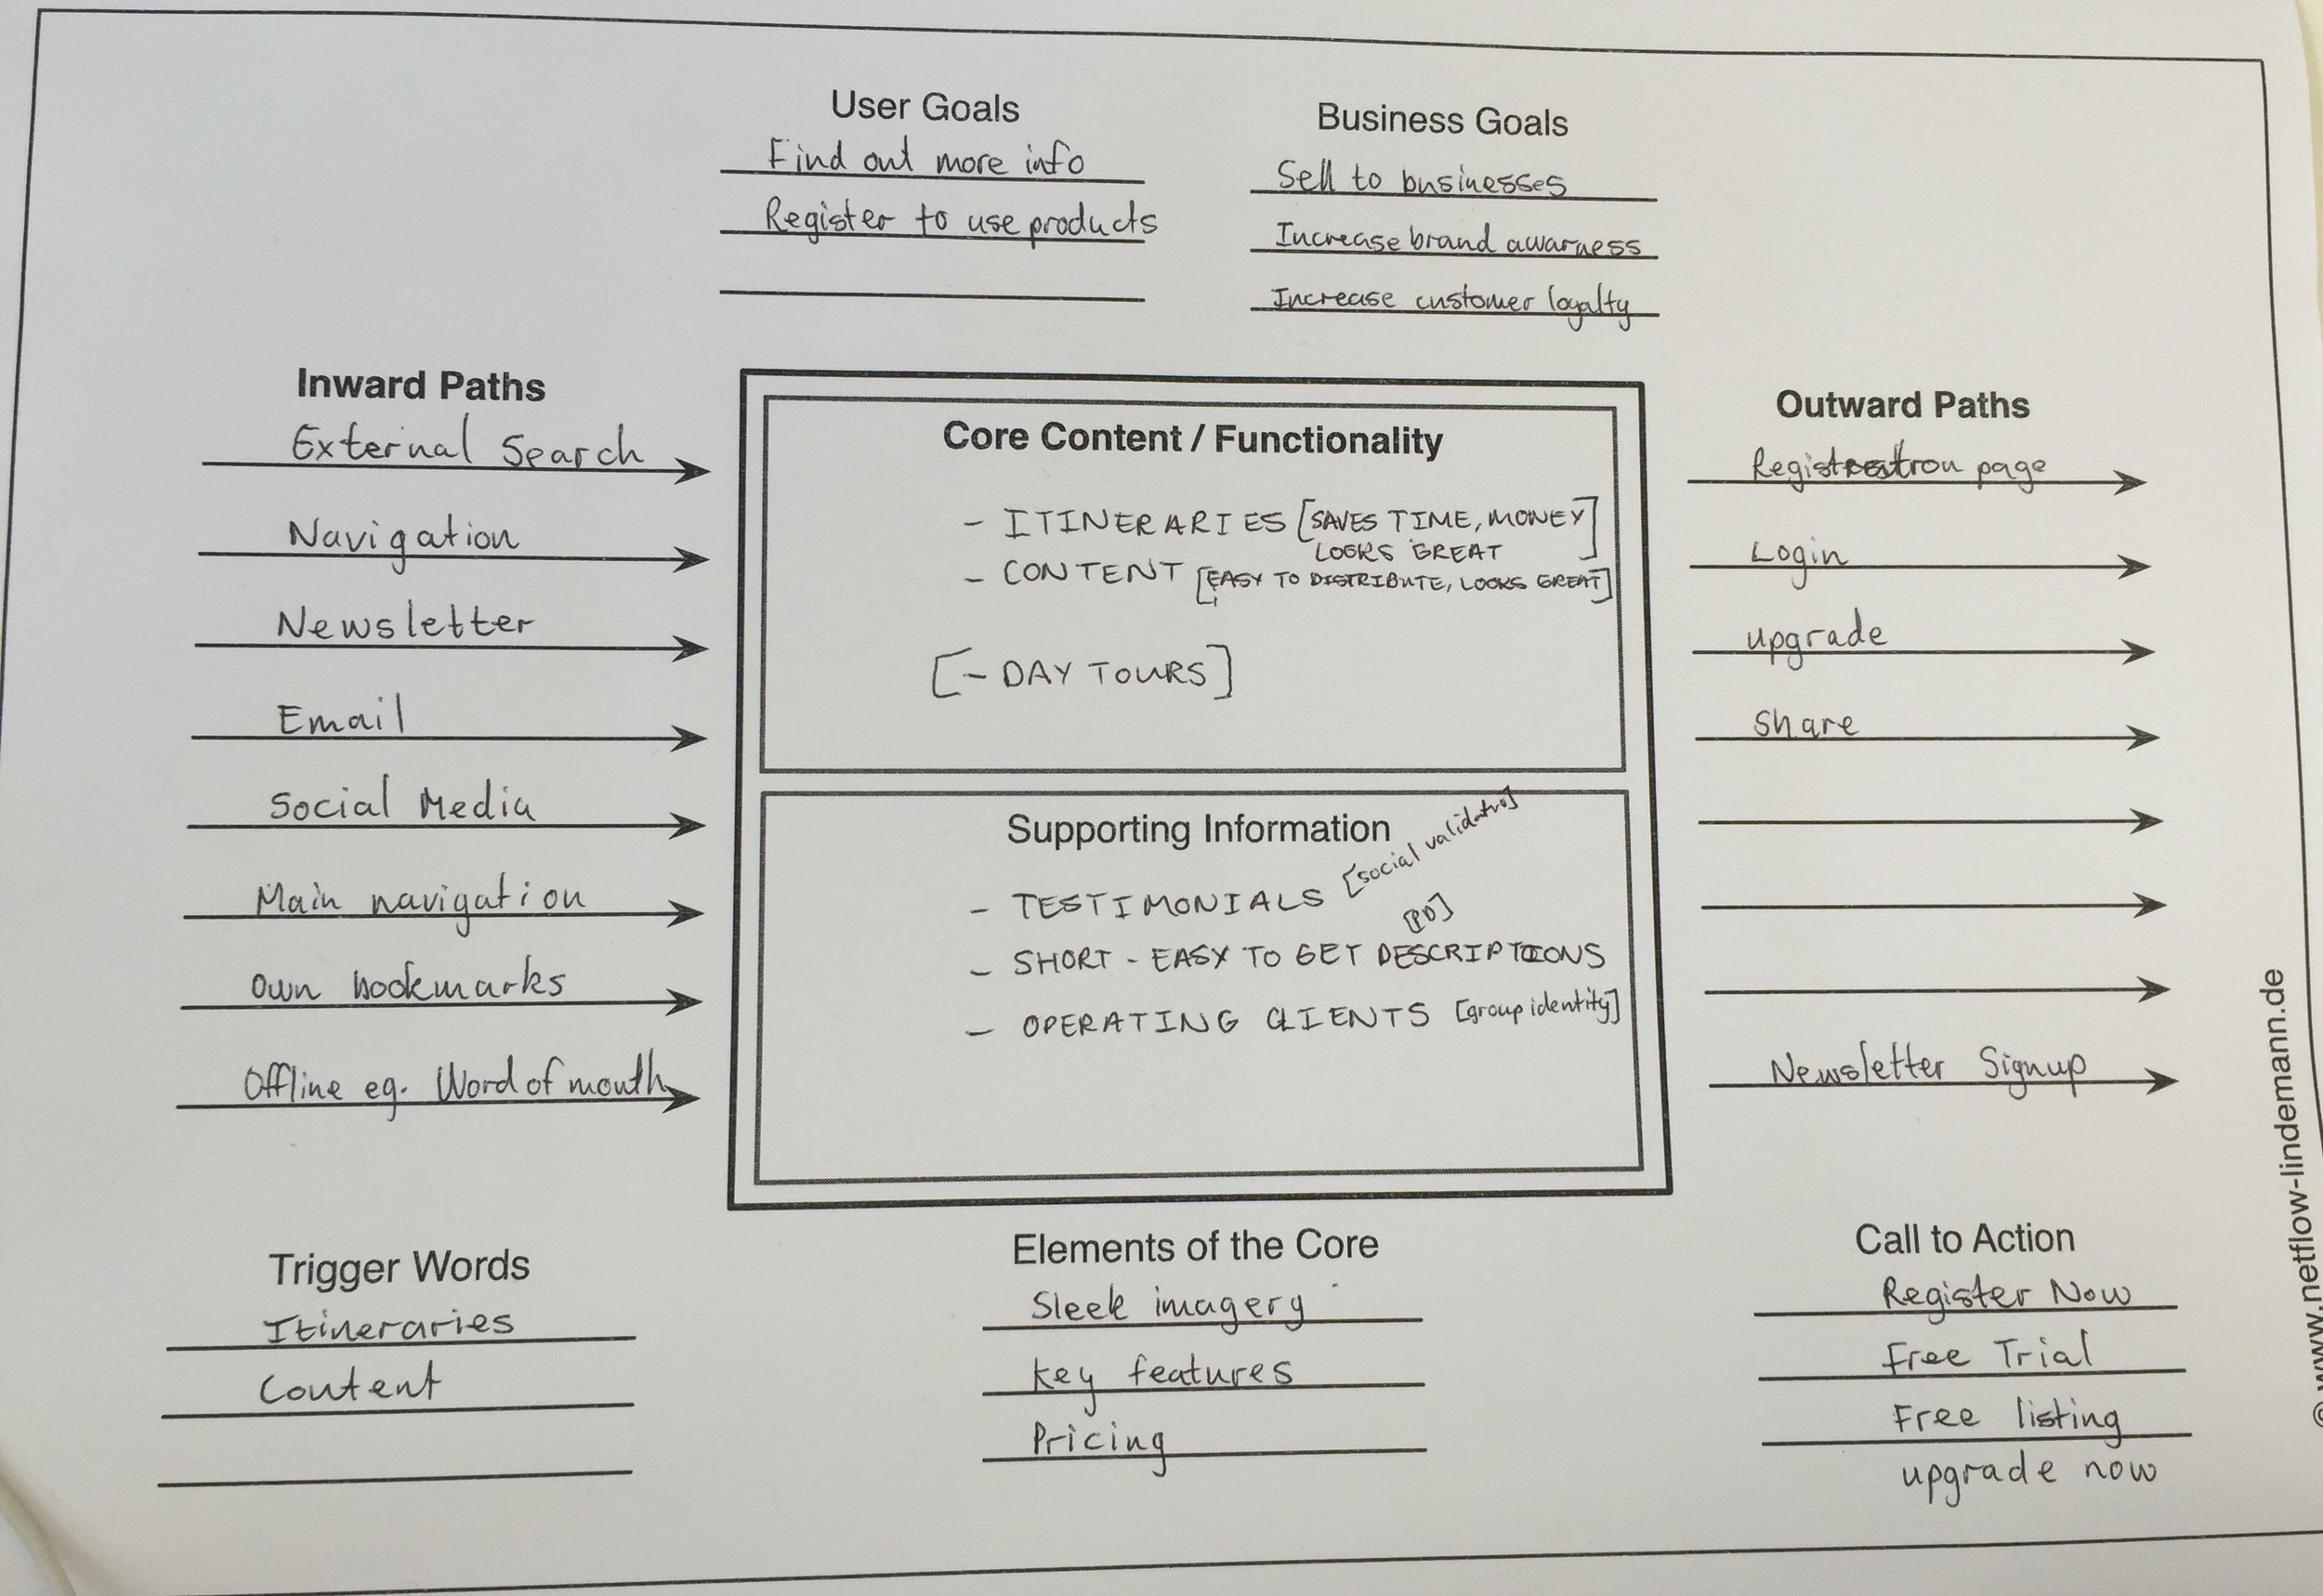 User Goals
Find out more info
Register to use products
Business Goals
Sell to businesses
Increase brand awarness
Increase customer loyalty
Inward Paths
External Search
Navigation
Newsletter
Email
Social Media
Main navigation
Own bookmarks
Offline eg. Word of mouth
Core Content / Functionality
- ITINERARIES [SAVES TIME, MONEY
LOOKS GREAT]
- CONTENT [EASY TO DISTRIBUTE, LOOKS GREAT]
[- DAY TOURS]
Supporting Information
- TESTIMONIALS [social validatio]
[PD]
- SHORT - EASY TO GET DESCRIPTIONS
- OPERATING CLIENTS [group identity]
Outward Paths
Registration page
Login
upgrade
share
Newsletter Signup
Trigger Words
Itineraries
Content
Elements of the Core
Sleek imagery
key features
Pricing
Call to Action
Register Now
Free Trial
Free listing
upgrade now
© www.netflow-lindemann.de